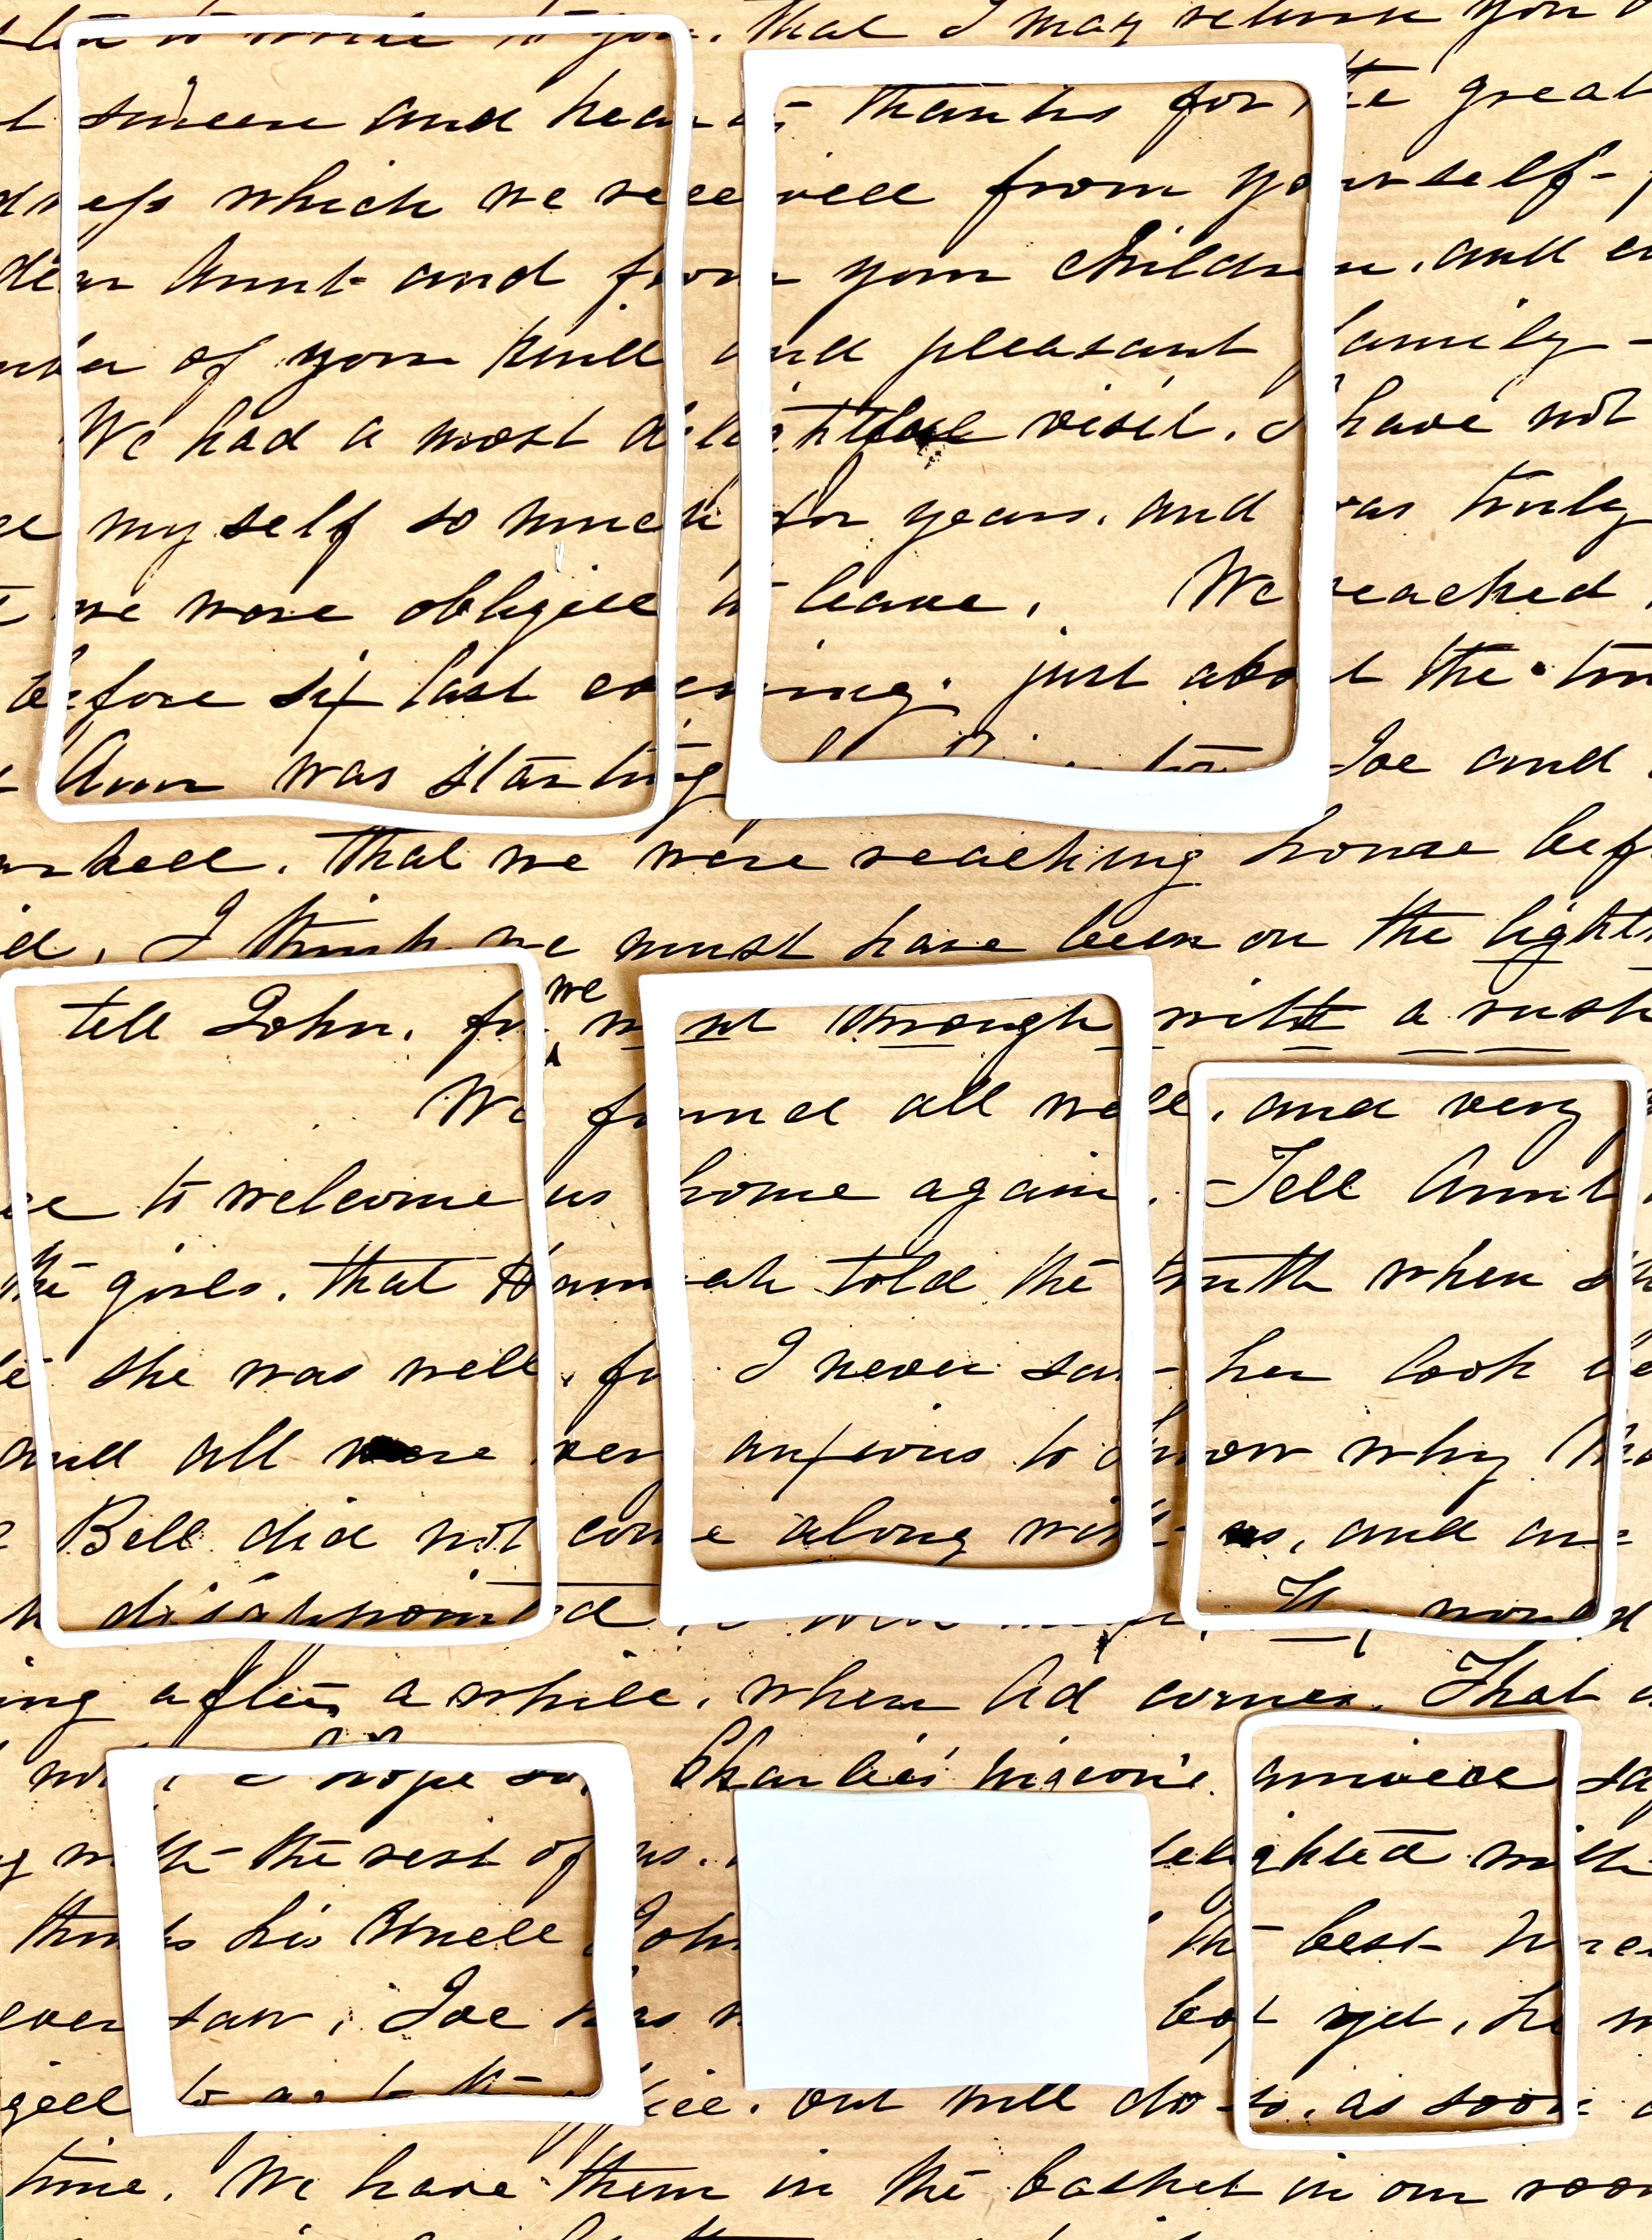 to you. that I may return you
sincere and thanks for the great
which we received from yourself-
dear Aunt and from your children, and
of your kind and pleasant family -
We had a most delightful visit. I have not
myself so much for years. and was truly
we were obliged to leave. We reached
before six last evening. just about the
Ann was starting Joe and
that we were reaching home bef
I think we must have been on the light
tell John. for we went through with a rush
We found all well. and very
to welcome us home again. Tell Aunt
the girls. that Hannah told the truth when
she was well. for I never saw her look be
and all were very anxious to know why
Bell did not come along with us, and are
disappointed would
ing after a while. when Ad comes. That
I hope so. Charlie's pigeons arrived sa
with the rest of us. delighted with
thinks his Uncle John the best
ever saw. Joe has yet, he
to go to the office. but will do so. as soon
time. We have them in the basket in our room